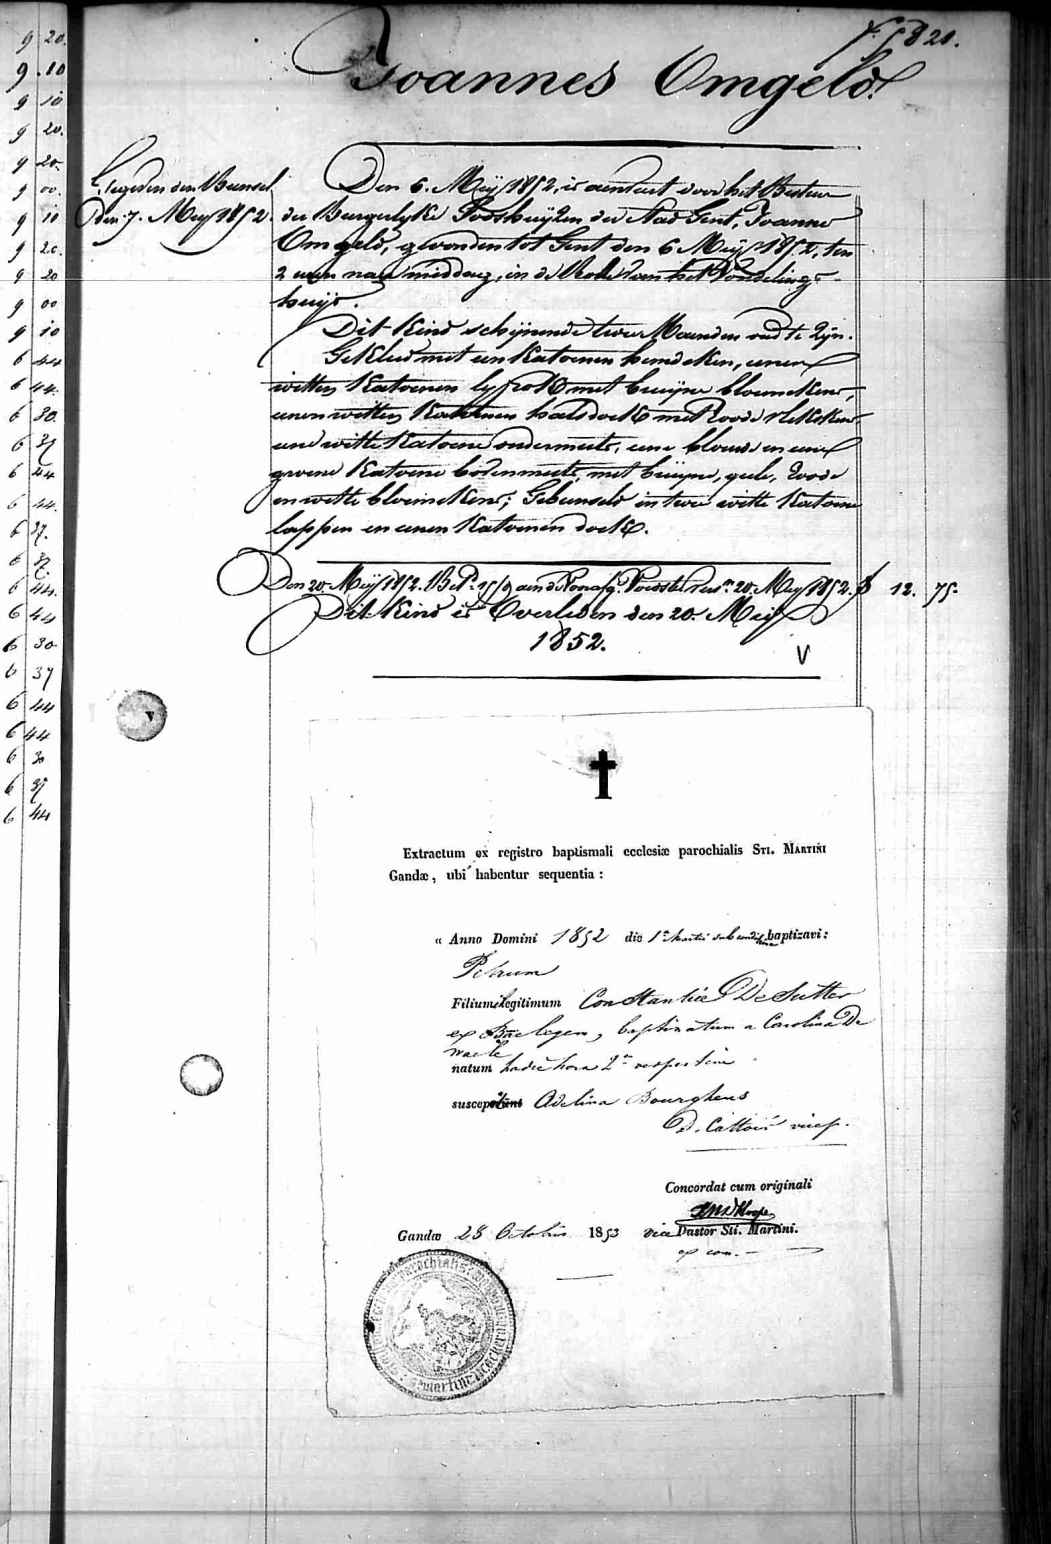 9 20.
9 .10
9 10
9 20.
9 20.
9 00.
9 10
9 20.
9 20
9 00
9 10
6 44
6 44.
6 30.
6 37
6 44
6 44.
6 37.
6 37
6 44.
6 44
6 30
6 37
6 44
6 44
6 30
6 37
6 44
820.
Joannes Omgeld.
den Bussel
Den 7. Mey 1852.
Den 6. Meij 1852, is aenveert door het Bestuer
der Burgerlyke Godshuijzen der Stad Gent, Joannes
Omgeld, gevonden tot Gent den 6 Meij 1852, ten
2 uren naer middag, in de Rolle van het Vondelings-
huijs.
Dit Kind schijnende twee Maenden oud te Zijn.
Gekleed met een Katoenen hemdeken, eenen
witten Katoenen lyfrok met bruijne bloemekens,
eenen witten Katoenen halsdoek met roode vlekskens,
eene witte Katoene ondermuts, eene blonde en eene
groene Katoene bovenmuts, met bruijne, geele, roode
en witte bloemekens; Gebusseld in twee witte Katoene
lappen en eenen Katoenen doek.
Den 20 Meij 1852. 20 Mey 1852. 12. 75.
Dit Kind is Overleden den 20. Meij
1852.
V
Extractum ex registro baptismali ecclesiæ parochialis Sti. Martini
Gandæ, ubi habentur sequentia:
« Anno Domini 1852 die 1a Martii sub conditione baptizavi:
Petrum
Filium illegitimum Constantiæ De Sutter
ex Baelegem, baptizatum a Carolina De
Waele
natum hodie hora 2a vespertina
suscep Adelina Bourghens
D. Cattoir vicep.
Concordat cum originali
Gandæ 28 Octobris 1853 vice Pastor Sti. Martini.
ex com.